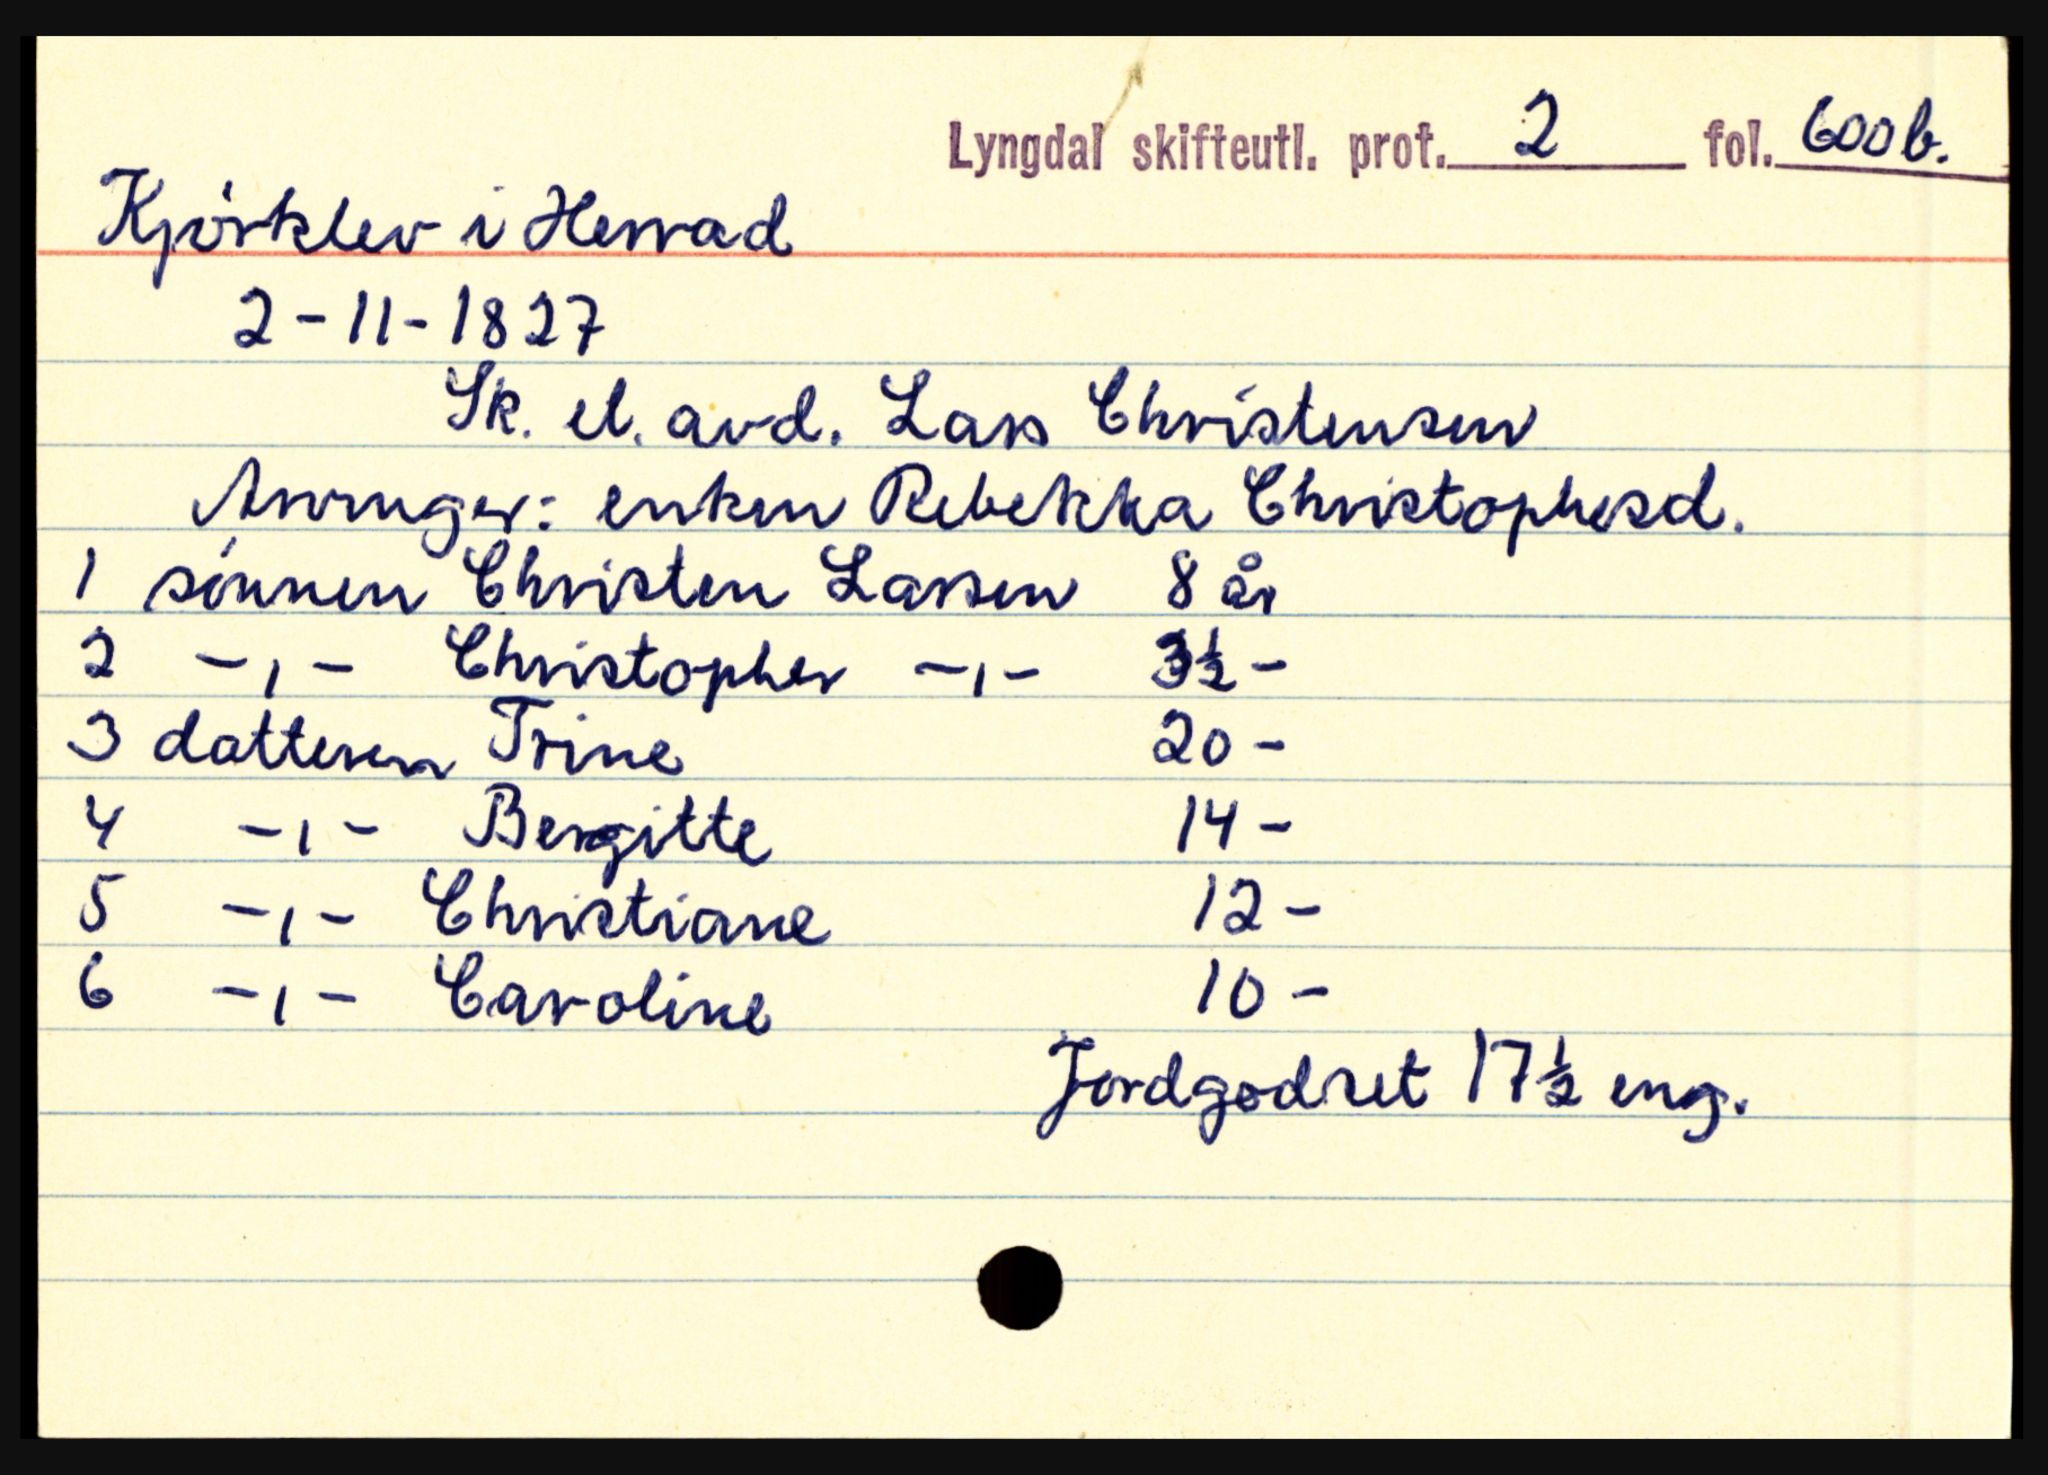 Lyngdal skifteutl. prot. 2 fol. 600b.
Kjørklev i Herrad
2-11-1827
Sk. et. avd. Lars Christensen
Arvinger: enken Rebekka Christophersd.
1 sønnen Christen Larssen 8 år
2 -,- Christopher -,- 3½ -
3 datteren Trine 20 -
4 -,- Bergitte 14 -
5 -,- Christiane 12 -
6 -,- Caroline 10 -
Jordgodset 17½ eng.